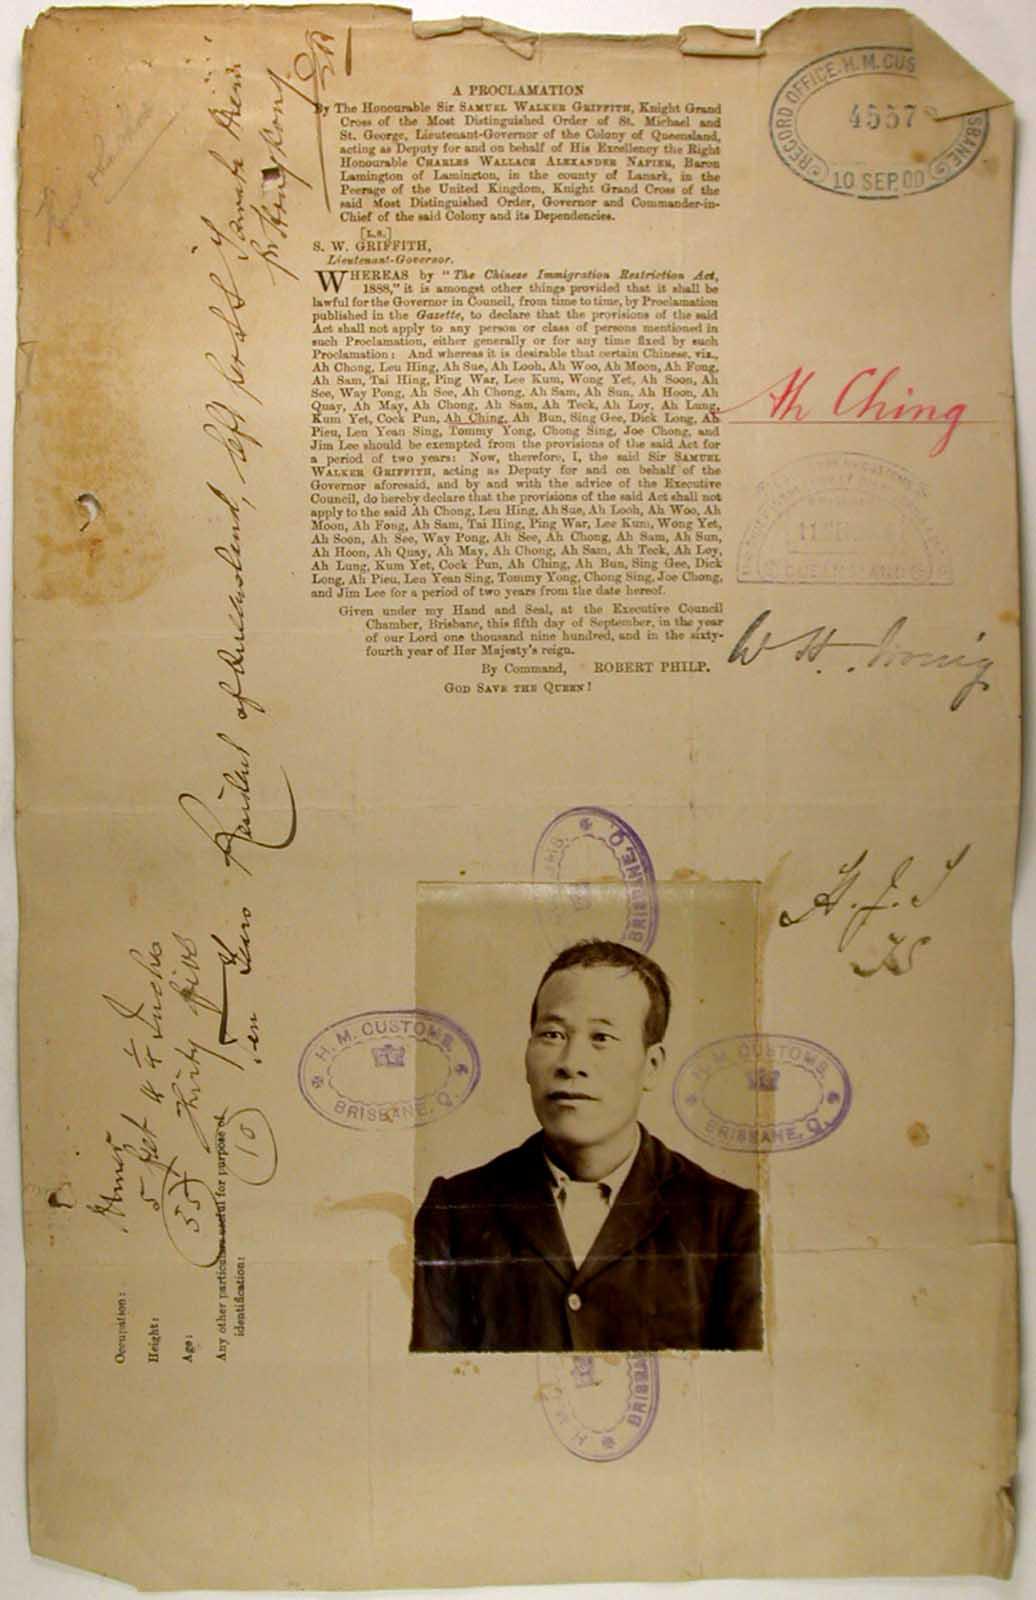 A PROCLAMATION
By The Honourable Sir SAMUEL WALKER GRIFFITH, Knight Grand
Cross of the Most Distinguished Order of St. Michael and
St. George, Lieutenant-Governor of the Colony of Queensland,
acting as Deputy for and on behalf of His Excellency the Right
Honourable CHARLES WALLACE ALEXANDER NAPIER, Baron
Lamington of Lamington, in the county of Lanark, in the
Peerage of the United Kingdom, Knight Grand Cross of the
said Most Distinguished Order, Governor and Commander-in-
Chief of the said Colony and its Dependencies.
[L.S.]
S. W. GRIFFITH,
Lieutenant-Governor.
WHEREAS by "The Chinese Immigration Restriction Act,
1888," it is amongst other things provided that it shall be
lawful for the Governor in Council, from time to time, by Proclamation
published in the Gazette, to declare that the provisions of the said
Act shall not apply to any person or class of persons mentioned in
such Proclamation, either generally or for any time fixed by such
Proclamation: And whereas it is desirable that certain Chinese, viz.,
Ah Chong, Leu Hing, Ah Sue, Ah Looh, Ah Woo, Ah Moon, Ah Fong,
Ah Sam, Tai Hing, Ping War, Lee Kum, Wong Yet, Ah Soon, Ah
See, Way Pong, Ah See, Ah Chong, Ah Sam, Ah Sun, Ah Hoon, Ah
Quay, Ah May, Ah Chong, Ah Sam, Ah Teck, Ah Loy, Ah Lung,
Kum Yet, Cock Pun, Ah Ching, Ah Bun, Sing Gee, Dick Long, Ah
Pieu, Len Yean Sing, Tommy Yong, Chong Sing, Joe Chong, and
Jim Lee should be exempted from the provisions of the said Act for
a period of two years: Now, therefore, I, the said Sir SAMUEL
WALKER GRIFFITH, acting as Deputy for and on behalf of the
Governor aforesaid, and by and with the advice of the Executive
Council, do hereby declare that the provisions of the said Act shall not
apply to the said Ah Chong, Leu Hing, Ah Sue, Ah Looh, Ah Woo, Ah
Moon, Ah Fong, Ah Sam, Tai Hing, Ping War, Lee Kum, Wong Yet,
Ah Soon, Ah See, Way Pong, Ah See, Ah Chong, Ah Sam, Ah Sun,
Ah Hoon, Ah Quay, Ah May, Ah Chong, Ah Sam, Ah Teck, Ah Loy,
Ah Lung, Kum Yet, Cock Pun, Ah Ching, Ah Bun, Sing Gee, Dick
Long, Ah Pieu, Len Yean Sing, Tommy Yong, Chong Sing, Joe Chong,
and Jim Lee for a period of two years from the date hereof.
Given under my Hand and Seal, at the Executive Council
Chamber, Brisbane, this fifth day of September, in the year
of our Lord one thousand nine hundred, and in the sixty-
fourth year of Her Majesty's reign.
By Command, ROBERT PHILP.
GOD SAVE THE QUEEN!
RECORD OFFICE. H. M. CUS
SBANE
45578
10 SEP. 00
Ah Ching
QUEENSLAND
W H
H. J. S
H. M. CUSTOMS.
BRISBANE, Q.
H. M. CUSTOMS.
BRISBANE, Q.
BRISBANE, Q.
BRISBANE
Occupation: Miner
Height: 5 feet 4 1/4 Inches
Age: 35 Thirty five
Any other particulars useful for purpose of
identification:
(10) Ten Years Resident of Queensland, left per S.S.
Hongkong